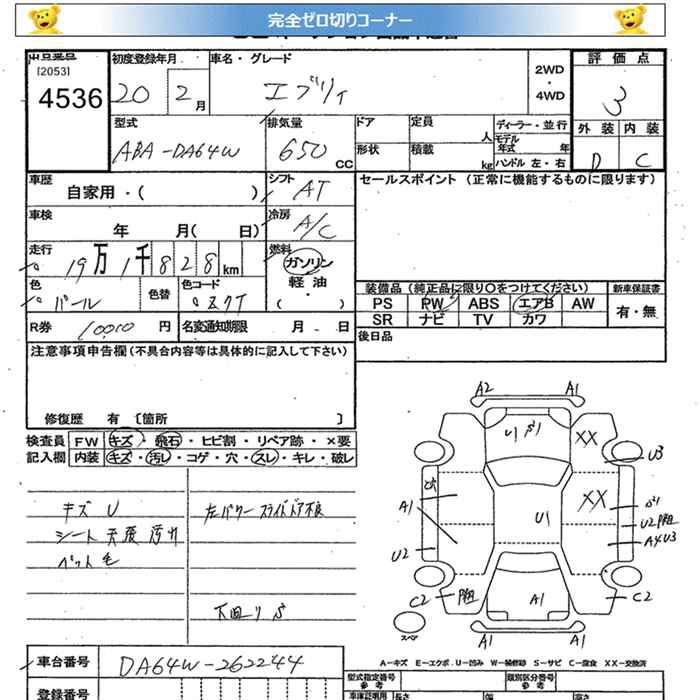 完全ゼロ切りコーナー
[2053]
4536
初度登録年月
20 2月
車名・グレード
エブリィ
2WD
・
4WD
評価点
3
外装 内装
D C
型式
ABA-DA64W
排気量
650 CC
ドア
定員
人
形状
積載
kg
ディーラー・並行
モデル
年式 年
ハンドル 左・右
車歴
自家用・( )
シフト
AT
セールスポイント (正常に機能するものに限ります)
車検
年 月( 日)
冷房
A/C
走行
19万1千828km
燃料
ガソリン
軽油
( )
色
パール
色替
色コード
装備品 (純正品に限り〇をつけてください)
PS PW ABS エアB AW
SR ナビ TV カワ
新車保証書
有・無
R券
10010 円
名変通知期限
月 日
後日品
注意事項申告欄 (不具合内容等は具体的に記入して下さい)
修復歴 有 〔箇所 〕
検査員
記入欄
FW キズ・飛石・ヒビ割・リペア跡・×要
内装 キズ・汚レ・コゲ・穴・スレ・キレ・破レ
キズ U
シート 天張 汚れ
ペット毛
左パワースライドドア不良
下回り S
A2 A1
U1
XX
U3
XX
A1
U1
U2
U2
A4 U3
C2
A1
C2
スペア
A1 A1
A-キズ E-エクボ U-凹み W-補修跡 S-サビ C-腐食 XX-交換済
車台番号
DA64W-262244
登録番号
型式指定番号
参考
類別区分番号
参考
車庫証明用
長さ
幅
高さ